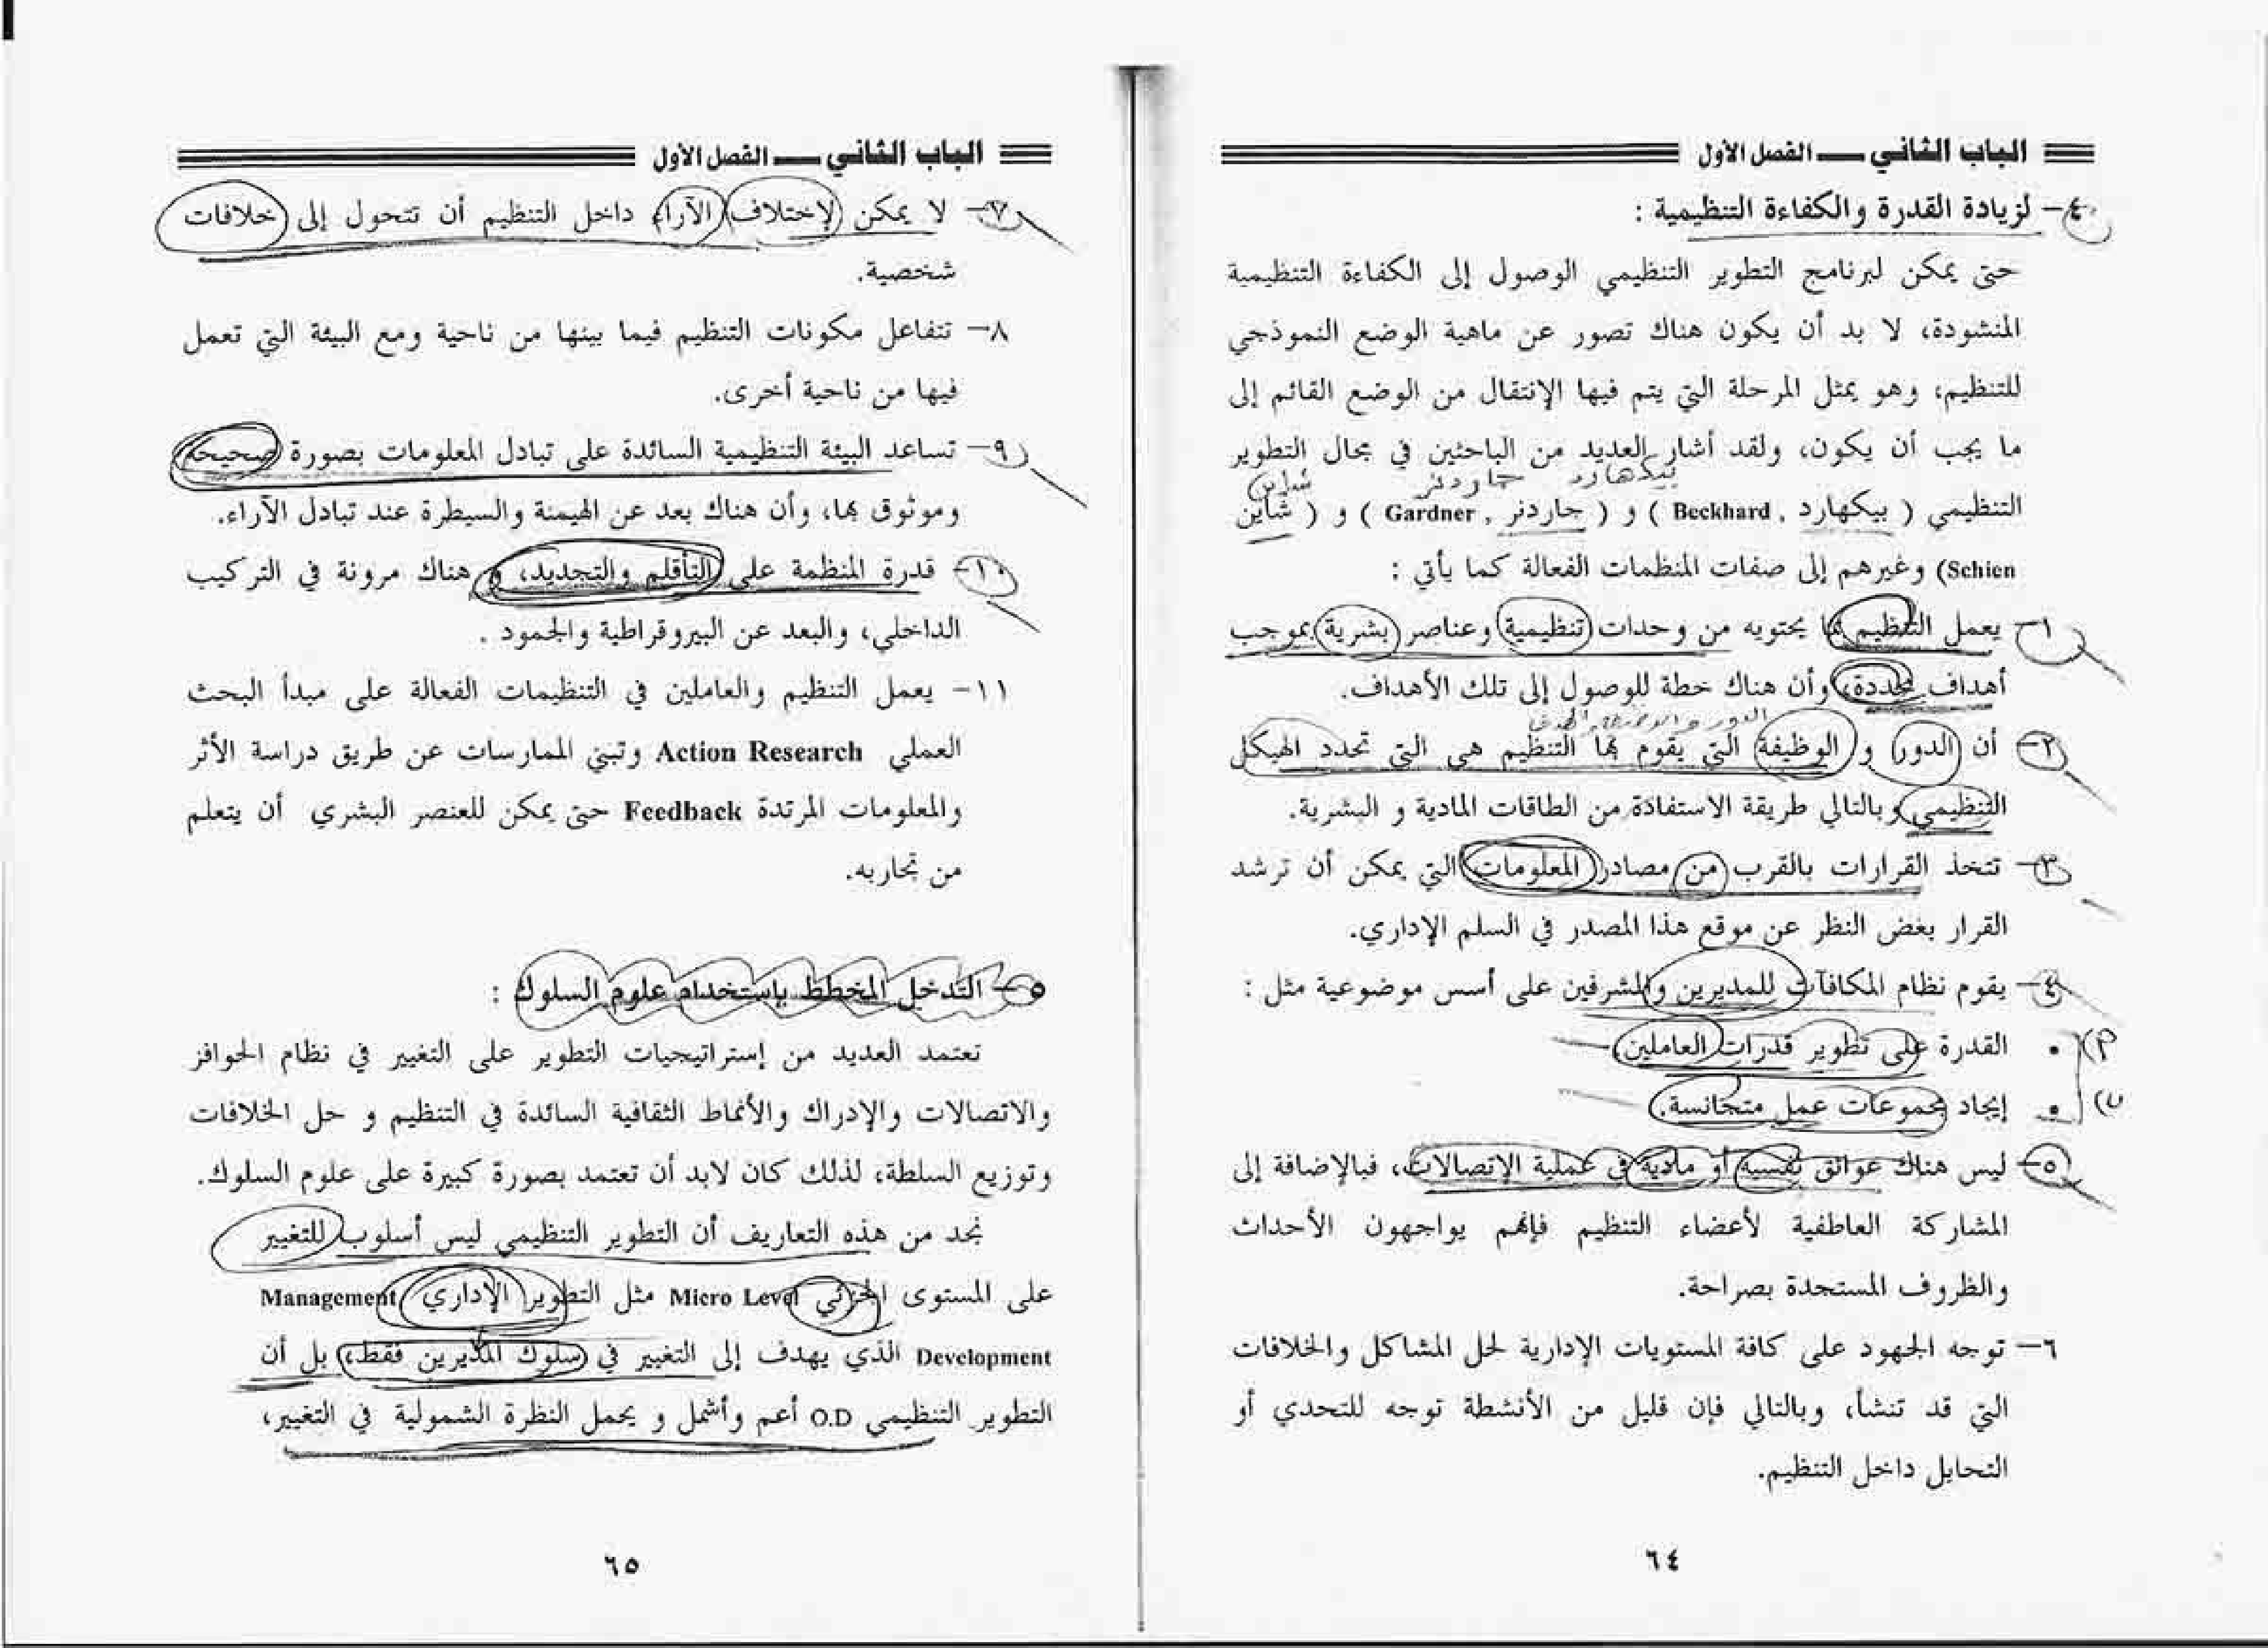 الباب الثاني — الفصل الأول
٤- لزيادة القدرة والكفاءة التنظيمية :
حتى يمكن لبرنامج التطوير التنظيمي الوصول إلى الكفاءة التنظيمية
المنشودة، لا بد أن يكون هناك تصور عن ماهية الوضع النموذجي
للتنظيم، وهو يمثل المرحلة التي يتم فيها الإنتقال من الوضع القائم إلى
ما يجب أن يكون، ولقد أشار العديد من الباحثين في مجال التطوير
بيكهارد جاردنر شاين
التنظيمي ( بيكهارد , Beckhard ) و ( جاردنر , Gardner ) و ( شاين
Schien) وغيرهم إلى صفات المنظمات الفعالة كما يأتي :
١- يعمل التنظيم بما يحتويه من وحدات تنظيمية وعناصر بشرية بموجب
أهداف محددة، وأن هناك خطة للوصول إلى تلك الأهداف.
٢- أن الدور و الوظيفة التي يقوم بها التنظيم هي التي تحدد الهيكل
التنظيمي وبالتالي طريقة الاستفادة من الطاقات المادية و البشرية.
٣- تتخذ القرارات بالقرب من مصادر المعلومات التي يمكن أن ترشد
القرار بغض النظر عن موقع هذا المصدر في السلم الإداري.
٤- يقوم نظام المكافآت للمديرين والمشرفين على أسس موضوعية مثل :
• القدرة على تطوير قدرات العاملين.
• إيجاد مجموعات عمل متجانسة.
٥- ليس هناك عوائق نفسية أو مادية في عملية الإتصالات، فبالإضافة إلى
المشاركة العاطفية لأعضاء التنظيم فإنهم يواجهون الأحداث
والظروف المستجدة بصراحة.
٦- توجه الجهود على كافة المستويات الإدارية لحل المشاكل والخلافات
التي قد تنشأ، وبالتالي فإن قليل من الأنشطة توجه للتحدي أو
التحايل داخل التنظيم.
٦٤
الباب الثاني — الفصل الأول
٧- لا يمكن لإختلاف الآراء داخل التنظيم أن تتحول إلى خلافات
شخصية.
٨- تتفاعل مكونات التنظيم فيما بينها من ناحية ومع البيئة التي تعمل
فيها من ناحية أخرى.
٩- تساعد البيئة التنظيمية السائدة على تبادل المعلومات بصورة صحيحة
وموثوق بها، وأن هناك بعد عن الهيمنة والسيطرة عند تبادل الآراء.
١٠- قدرة المنظمة على التأقلم والتجديد، و هناك مرونة في التركيب
الداخلي، والبعد عن البيروقراطية والجمود .
١١- يعمل التنظيم والعاملين في التنظيمات الفعالة على مبدأ البحث
العملي Action Research وتبني الممارسات عن طريق دراسة الأثر
والمعلومات المرتدة Feedback حتى يمكن للعنصر البشري أن يتعلم
من تجاربه.
٥- التدخل المخطط بإستخدام علوم السلوك :
تعتمد العديد من إستراتيجيات التطوير على التغيير في نظام الحوافز
والاتصالات والإدراك والأنماط الثقافية السائدة في التنظيم و حل الخلافات
وتوزيع السلطة، لذلك كان لابد أن تعتمد بصورة كبيرة على علوم السلوك.
نجد من هذه التعاريف أن التطوير التنظيمي ليس أسلوب للتغيير
على المستوى الجزئي Micro Level مثل التطوير الإداري Management
Development الذي يهدف إلى التغيير في سلوك المديرين فقط، بل أن
التطوير التنظيمي O.D أعم وأشمل و يحمل النظرة الشمولية في التغيير،
٦٥